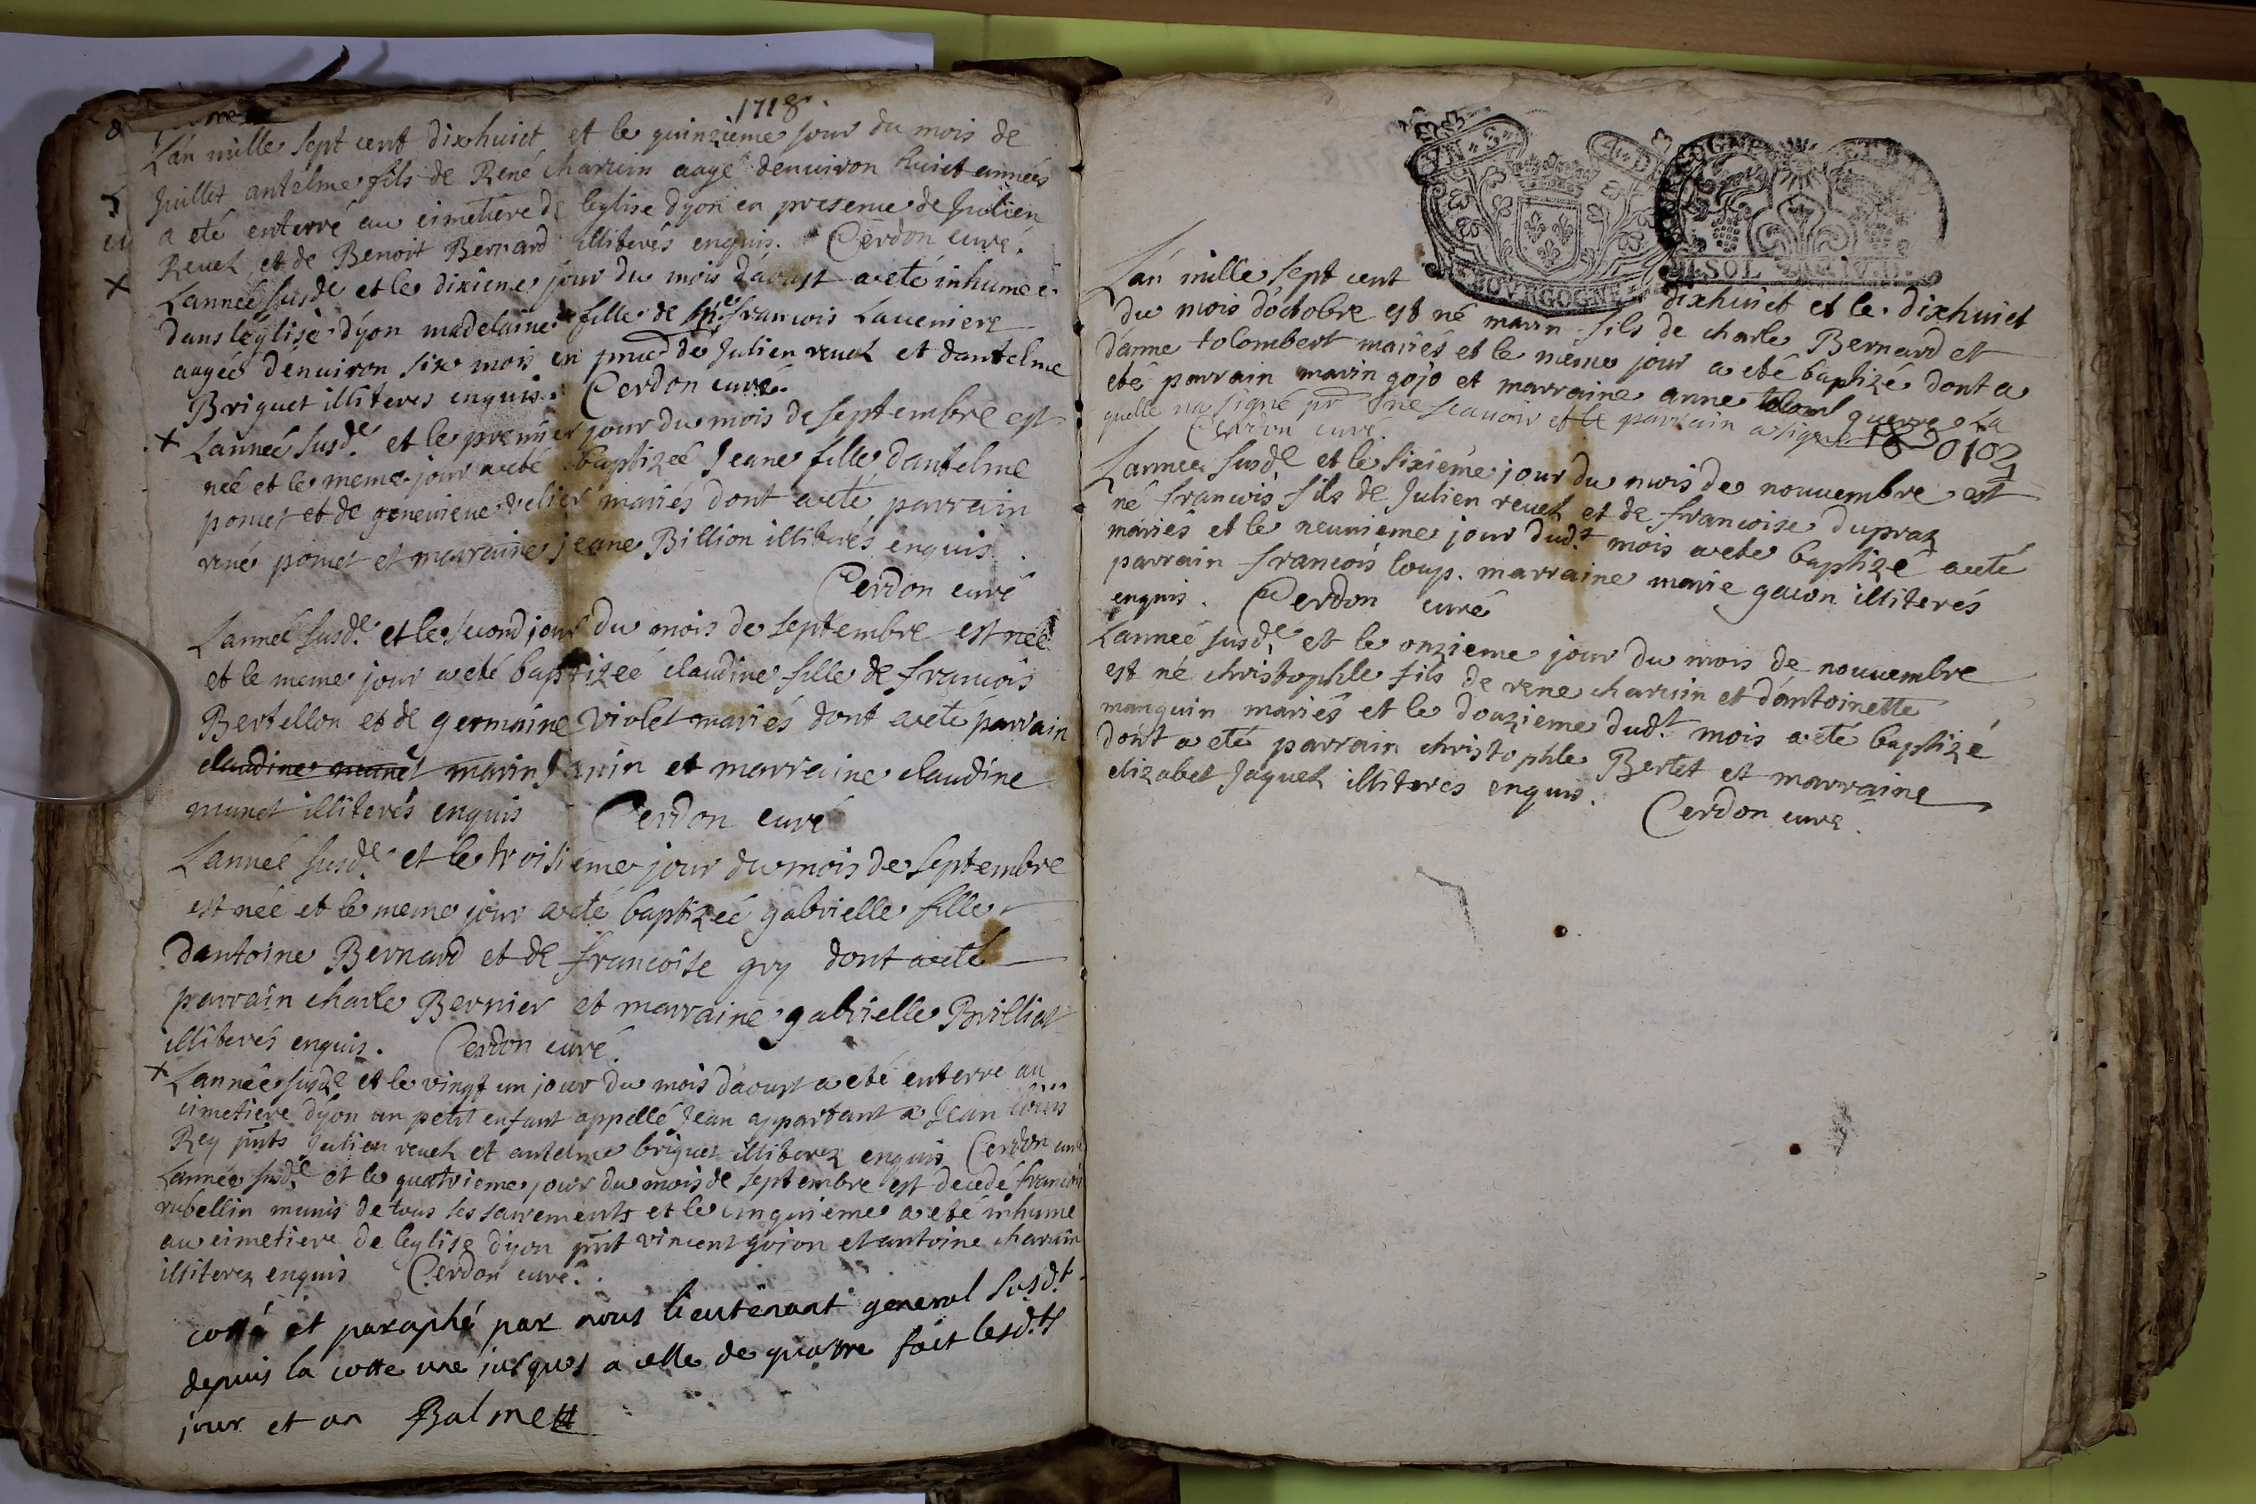 1718.
L'an mille sept cent dixhuict et le quinzieme jour du mois de
Juillet antelme fils de René charuin aagé denuiron huict années
a eté enterré au cimetiere de leglise dyon en presence de Julien
Reuel et de Benoit Bernard illiterés enquis. Cerdon curé.
X Lannee susde et le dixieme jour du mois d'aoust a eté inhumeé
dans leglise dyon madelaine fille de francois Laueniere
aageé denuiron six mois en de Julien reuel et dantelme
Briguet illiteres enquis. Cerdon curé.
X Lanneé susde et le premier jour du mois de septembre est
neé et le meme jour a eté baptizeé Jeane fille dantelme
pomet et de geneuieue mariés dont a eté parrain
rené pomet et marraine jeane Billion illiterés enquis.
Cerdon curé
Lanneé susde et le second jour du mois de septembre est neé
et le meme jour a eté baptizeé claudine fille de francois
Bertellon et de germaine Violet mariés dont a eté parrain
claudine munet marin Janin et marraine claudine
munet illiterés enquis Cerdon curé
Lanneé susde et le troisieme jour du mois de septembre
est neé et le meme jour a eté baptizeé gabrielle fille
dantoine Bernard et de francoise guy dont a eté
parrain charle Bernier et marraine gabrielle Brilliat
illiterés enquis. Cerdon curé.
X Lannée susde et le vingt un jour du mois d'aoust a eté enterre au
cimetiere dyon un petit enfant appellé Jean appartant a Jean loüis
Rey pnts Julien reuel et antelme briguet illiterez enquis Cerdon curé
Lannée susde et le quatrieme jour du mois de septembre est decedé francois
rubellin munis de tous les sacrements et le cinquieme a eté inhume
au cimetiere de leglise dyon pnt vincent goion et antoine charuin
illiterez enquis Cerdon curé.
cotté et paraphé par nous lieutenant general susdt
depuis la cotte une jusques a celle de quatre fait lesdts
jour et an Balme
VN S.
BOVRGOGNE
L'an mille sept cent dixhuict et le dixhuict
du mois d'octobre est né marin fils de charle Bernard et
d'anne tolombert mariés et le meme jour a eté baptizé dont a
eté parrain marin gojo et marraine anne guerre La
quelle na signé pr ne scauoir et le parrain a signé
Cerdon curé
Lanneé susde et le sixieme jour du mois de nouuembre est
né francois fils de Julien reuel et de francoise dupraz
mariés et le neuuieme jour dudt mois a eté baptizé a eté
parrain francois loup. marraine marie gacon illiterés
enquis. Cerdon curé
Lanneé susde et le onzieme jour du mois de nouuembre
est né christophle fils de rene charuin et d'antoinette
manguin mariés et le douzieme dudt mois a eté baptizé
dont a eté parrain christophle Bertet et marraine
elizabet Jaquet illiteres enquis. Cerdon curé.